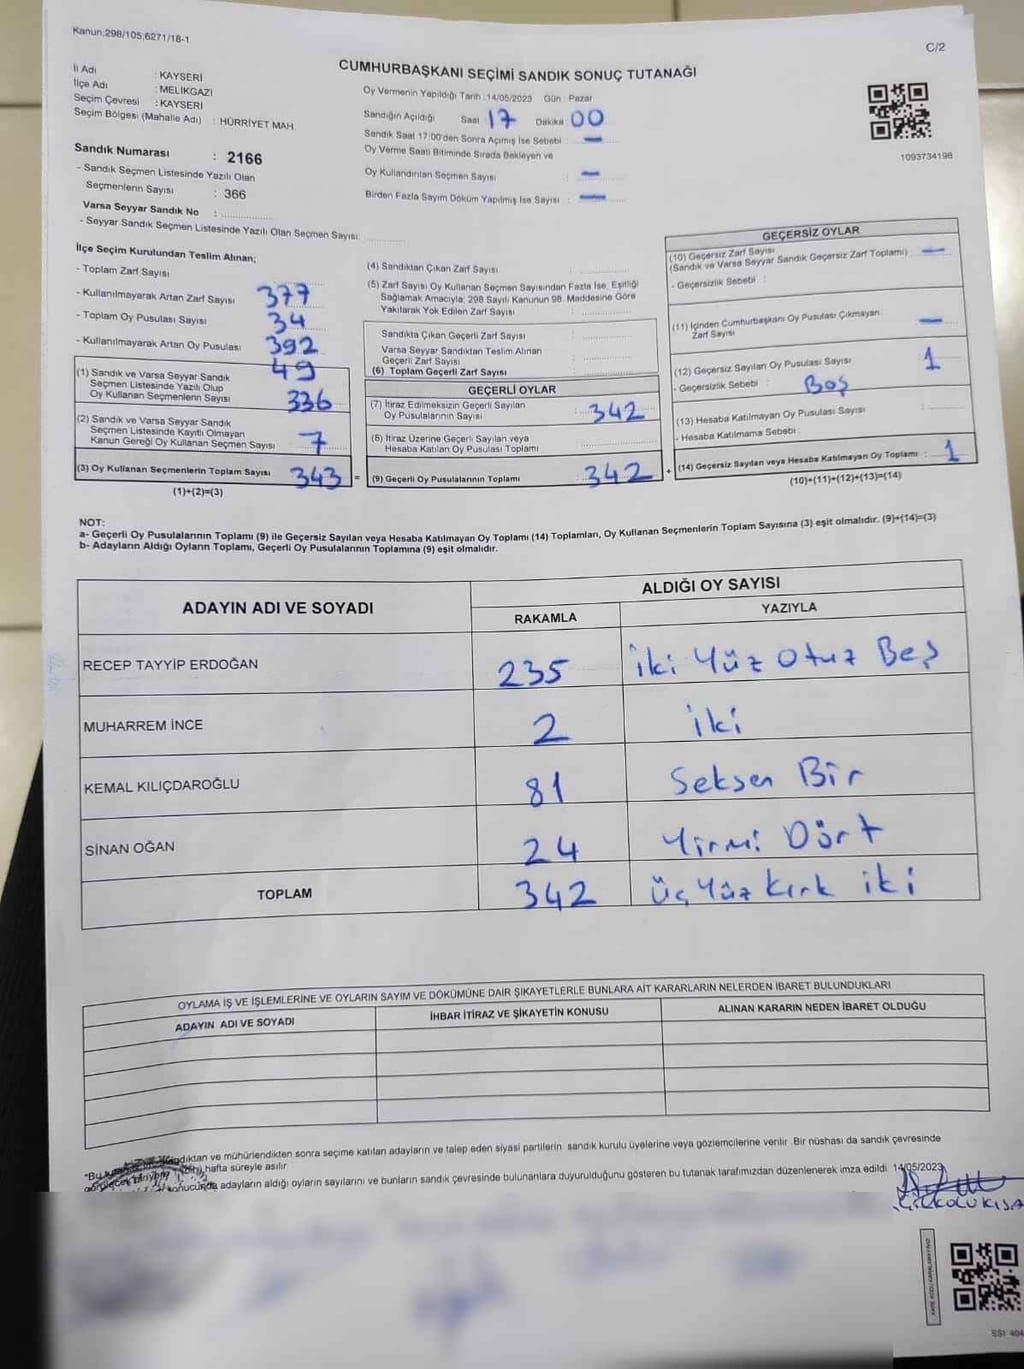 Kanun;298/105;6271/18-1
C/2
CUMHURBAŞKANI SEÇİMİ SANDIK SONUÇ TUTANAĞI
İl Adı : KAYSERİ
İlçe Adı : MELİKGAZİ
Seçim Çevresi : KAYSERİ
Seçim Bölgesi (Mahalle Adı) : HÜRRİYET MAH.
Sandık Numarası : 2166
- Sandık Seçmen Listesinde Yazılı Olan
Seçmenlerin Sayısı : 366
Varsa Seyyar Sandık No :
- Seyyar Sandık Seçmen Listesinde Yazılı Olan Seçmen Sayısı:
Oy Vermenin Yapıldığı Tarih :14/05/2023 Gün : Pazar
Sandığın Açıldığı Saat 17 Dakika 00
Sandık Saat 17:00'den Sonra Açımış İse Sebebi : —
Oy Verme Saati Bitiminde Sırada Bekleyen ve
Oy Kullandırılan Seçmen Sayısı : —
Birden Fazla Sayım Döküm Yapılmış İse Sayısı : —
1093734196
İlçe Seçim Kurulundan Teslim Alınan;
- Toplam Zarf Sayısı 377
- Kullanılmayarak Artan Zarf Sayısı 34
- Toplam Oy Pusulası Sayısı 392
- Kullanılmayarak Artan Oy Pusulası 49
(1) Sandık ve Varsa Seyyar Sandık
Seçmen Listesinde Yazılı Olup
Oy Kullanan Seçmenlerin Sayısı 336
(2) Sandık ve Varsa Seyyar Sandık
Seçmen Listesinde Kayıtlı Olmayan
Kanun Gereği Oy Kullanan Seçmen Sayısı 7
(3) Oy Kullanan Seçmenlerin Toplam Sayısı 343
(1)+(2)=(3)
(4) Sandıktan Çıkan Zarf Sayısı :
(5) Zarf Sayısı Oy Kullanan Seçmen Sayısından Fazla İse, Eşitliği
Sağlamak Amacıyla; 298 Sayılı Kanunun 98. Maddesine Göre
Yakılarak Yok Edilen Zarf Sayısı :
Sandıkta Çıkan Geçerli Zarf Sayısı :
Varsa Seyyar Sandıktan Teslim Alınan
Geçerli Zarf Sayısı :
(6) Toplam Geçerli Zarf Sayısı :
GEÇERLİ OYLAR
(7) İtiraz Edilmeksizin Geçerli Sayılan
Oy Pusulalarının Sayısı : 342
(8) İtiraz Üzerine Geçerli Sayılan veya
Hesaba Katılan Oy Pusulası Toplamı
= (9) Geçerli Oy Pusulalarının Toplamı : 342 +
GEÇERSİZ OYLAR
(10) Geçersiz Zarf Sayısı
(Sandık ve Varsa Seyyar Sandık Geçersiz Zarf Toplamı) : —
- Geçersizlik Sebebi :
(11) İçinden Cumhurbaşkanı Oy Pusulası Çıkmayan
Zarf Sayısı —
(12) Geçersiz Sayılan Oy Pusulası Sayısı : 1
- Geçersizlik Sebebi : Boş
(13) Hesaba Katılmayan Oy Pusulası Sayısı :
- Hesaba Katılmama Sebebi :
(14) Geçersiz Sayılan veya Hesaba Katılmayan Oy Toplamı : 1
(10)+(11)+(12)+(13)=(14)
NOT:
a- Geçerli Oy Pusulalarının Toplamı (9) ile Geçersiz Sayılan veya Hesaba Katılmayan Oy Toplamı (14) Toplamları, Oy Kullanan Seçmenlerin Toplam Sayısına (3) eşit olmalıdır. (9)+(14)=(3)
b- Adayların Aldığı Oyların Toplamı, Geçerli Oy Pusulalarının Toplamına (9) eşit olmalıdır.
ADAYIN ADI VE SOYADI ALDIĞI OY SAYISI
RAKAMLA YAZIYLA
RECEP TAYYİP ERDOĞAN 235 İki Yüz Otuz Beş
MUHARREM İNCE 2 İki
KEMAL KILIÇDAROĞLU 81 Seksen Bir
SİNAN OĞAN 24 Yirmi Dört
TOPLAM 342 Üç Yüz Kırk İki
OYLAMA İŞ VE İŞLEMLERİNE VE OYLARIN SAYIM VE DÖKÜMÜNE DAİR ŞİKAYETLERLE BUNLARA AİT KARARLARIN NELERDEN İBARET BULUNDUKLARI
ADAYIN ADI VE SOYADI İHBAR İTİRAZ VE ŞİKAYETİN KONUSU ALINAN KARARIN NEDEN İBARET OLDUĞU
ve mühürlendikten sonra seçime katılan adayların ve talep eden siyasi partilerin sandık kurulu üyelerine veya gözlemcilerine verilir. Bir nüshası da sandık çevresinde
hafta süreyle asılır
adayların aldığı oyların sayılarını ve bunların sandık çevresinde bulunanlara duyurulduğunu gösteren bu tutanak tarafımızdan düzenlenerek imza edildi. 14/05/2023